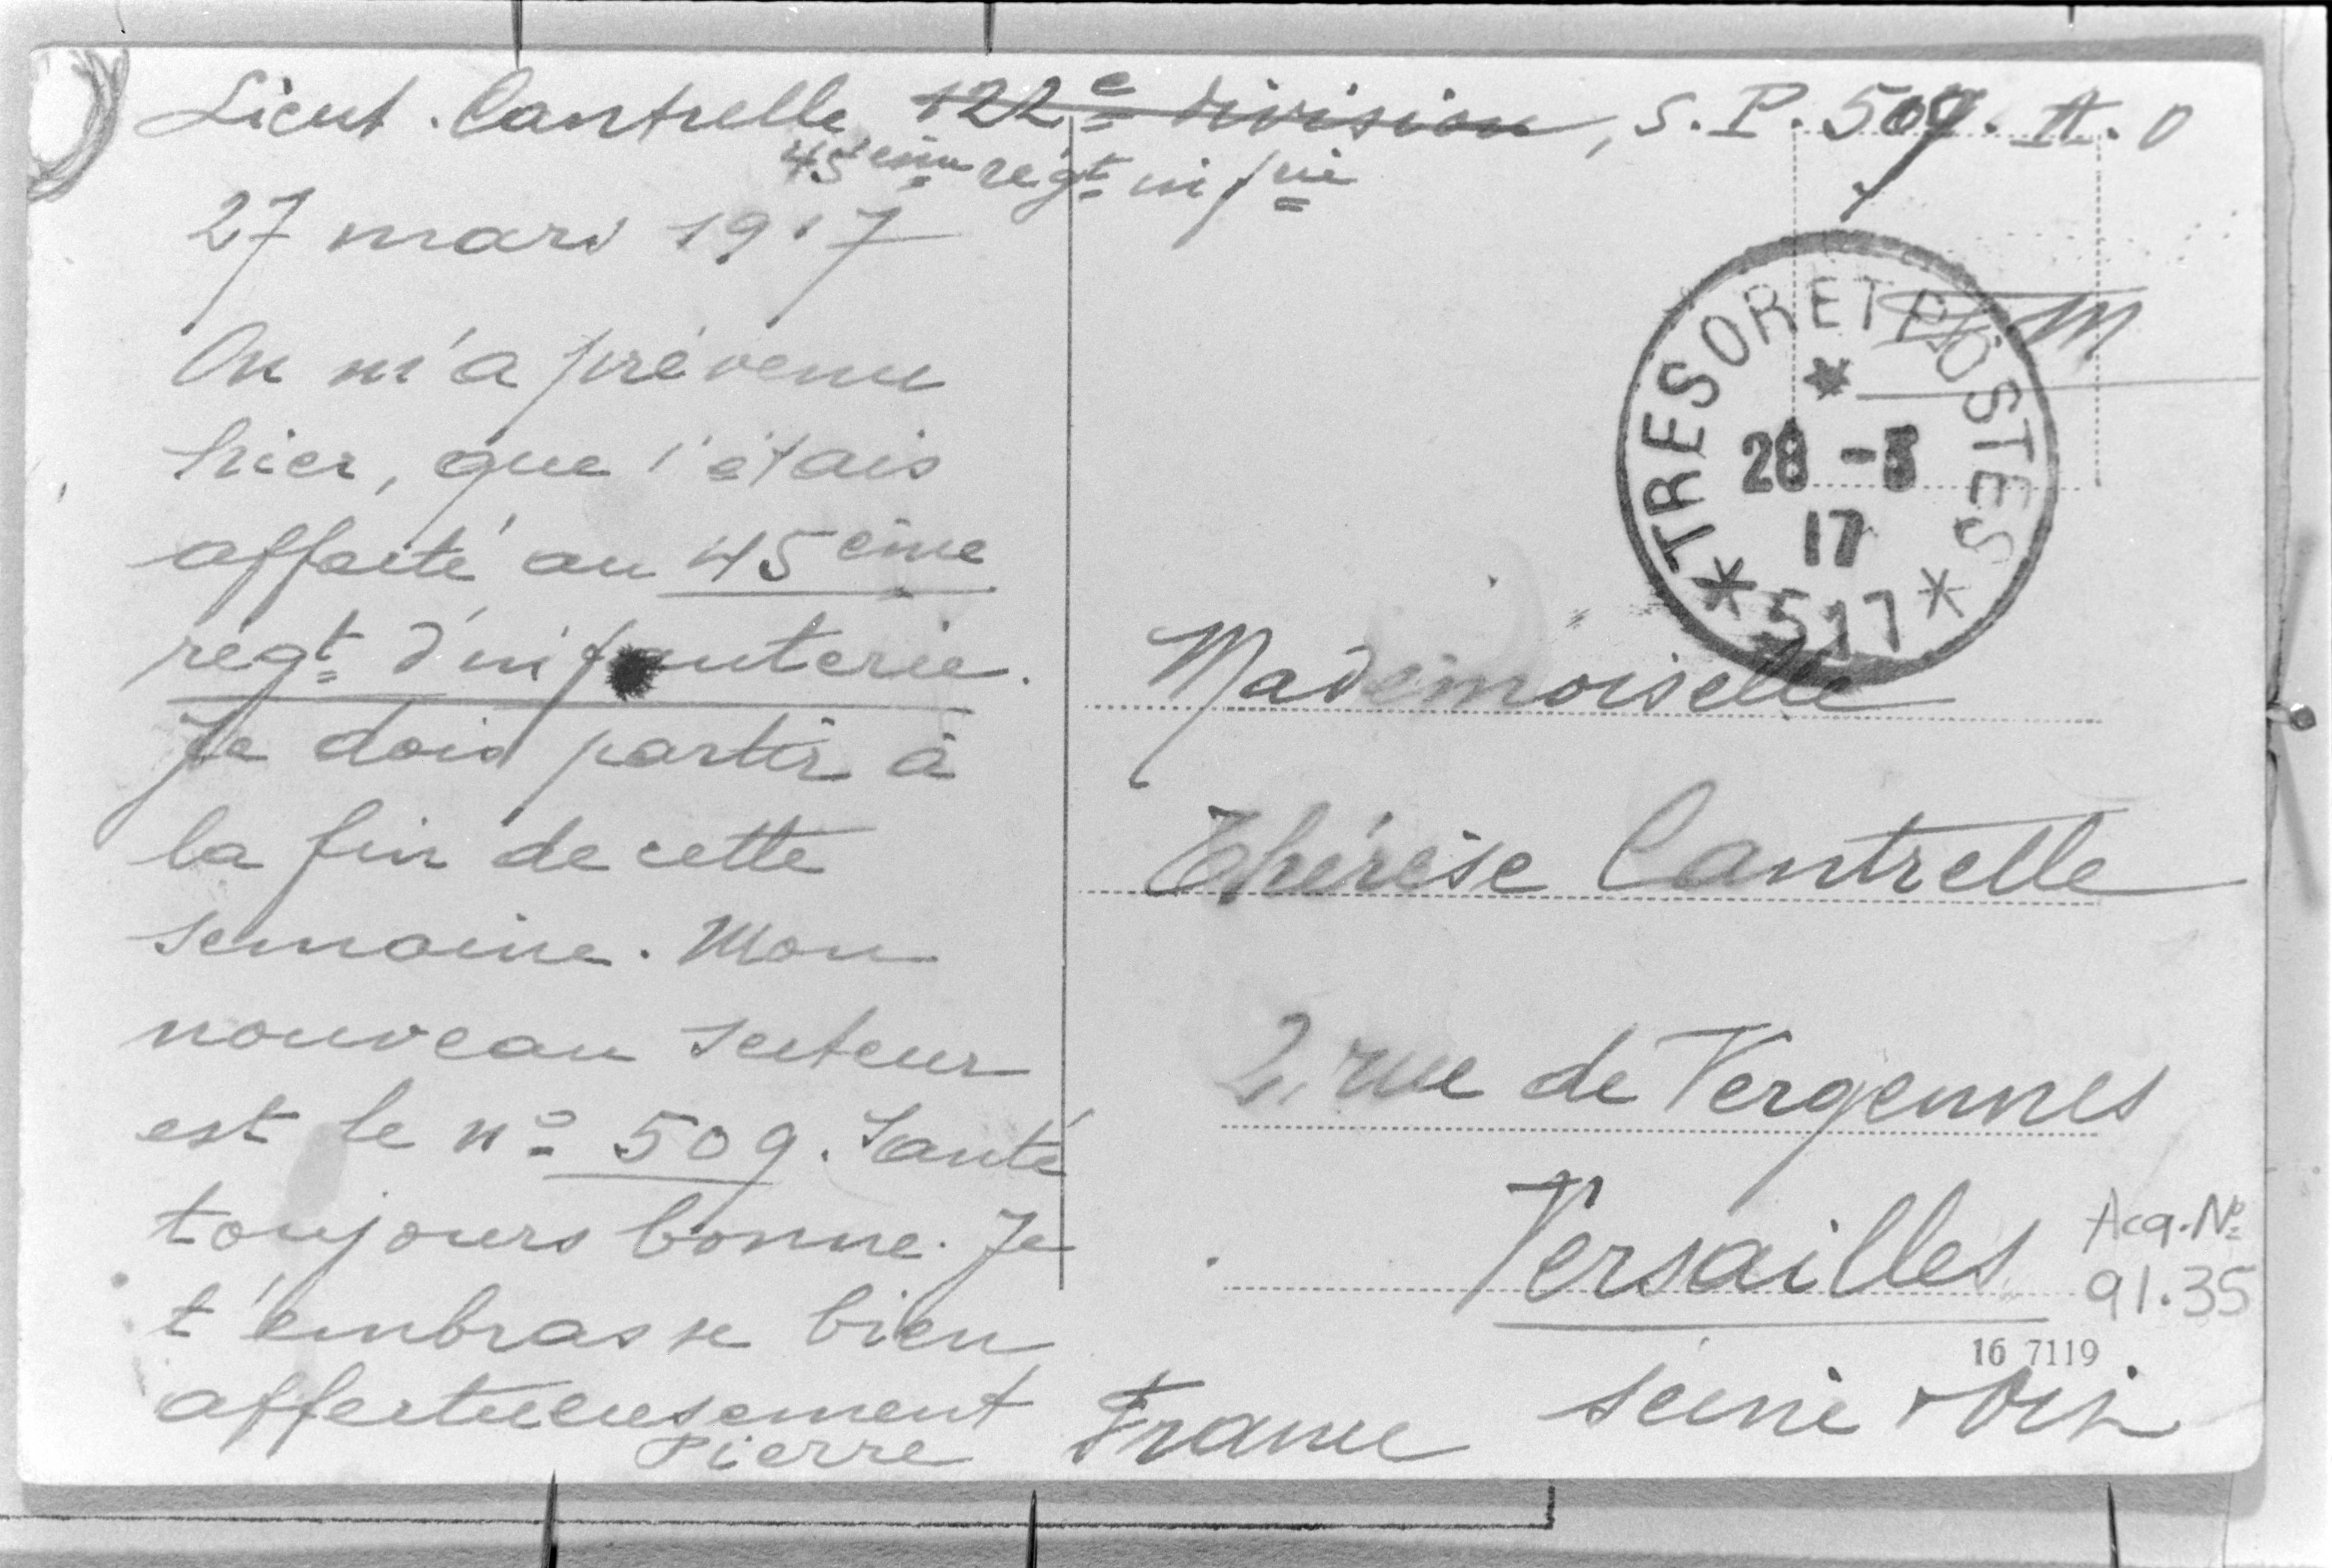 Lieut. Cantrelle 122e division, S.P. 509. A. O
45ème régt infrie
27 mars 1917
On m'a prévenu
hier, que j'étais
affecté au 45ème
régt d'infanterie.
Je dois partir à
la fin de cette
semaine. Mon
nouveau secteur
est le no 509. Santé
toujours bonne. Je
t'embrasse bien
affectueusement
Pierre
F M
TRESOR ET POSTES
28 -3
17
* 517 *
Mademoiselle
Thérèse Cantrelle
2, rue de Vergennes
Versailles
Seine & Oise
France
Acq. No
91.35
16 7119